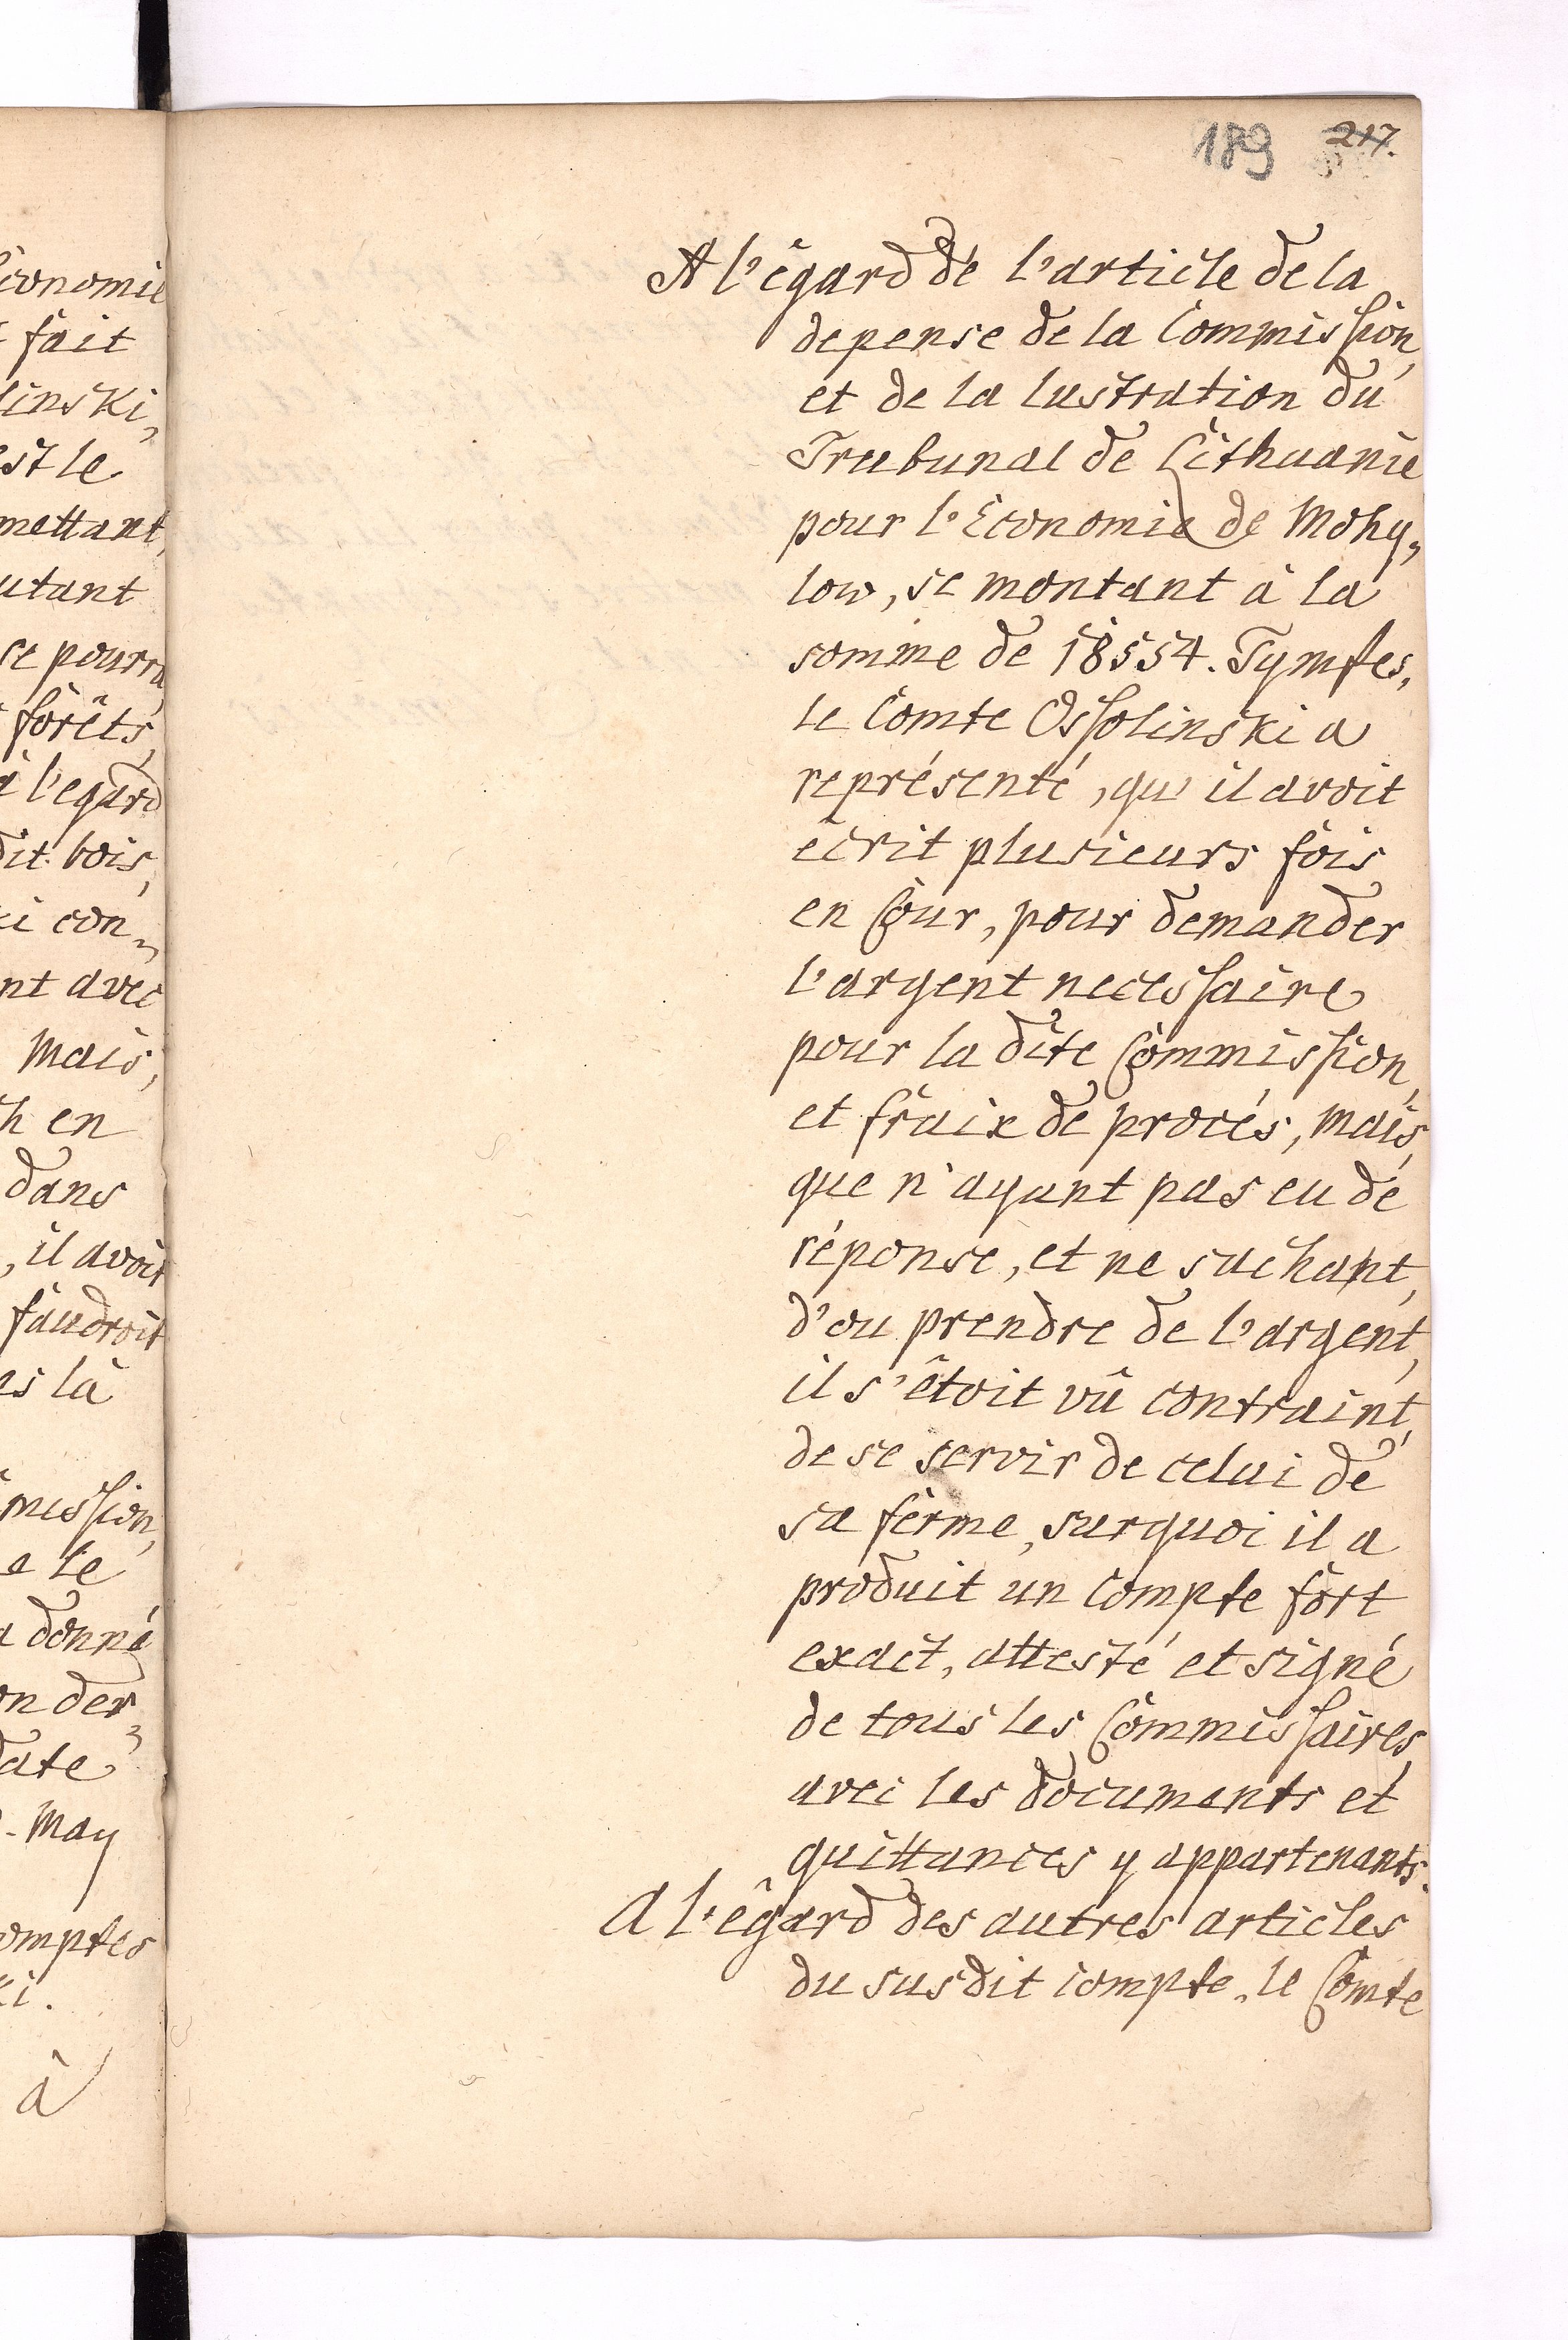 économie
fait
linski,
est le
mettant,
utant
se pourra
forêts,
à l'egard
dit bois,
ki con„
nt avec
Mais,
h en
dans
, il avoit
faudroit
es là
mission,
e le
a donné
on der„
date
. May
omptes
ki.
à
189 217.
A l'égard de l'article de la
depense de la Commission,
et de la lustration du
Trubunal de Lithuanie
pour l'Economie de Mohy„
low, se montant à la
somme de 18554. Tymfes,
le Comte Ossolinski a
représenté, qu'il avoit
écrit plusieurs fois
en Cour, pour demander
l'argent necessaire
pour la dite Commission,
et fraix de procés, mais,
que n'ayant pas eu de
réponse, et ne sachant,
d'ou prendre de l'argent,
il s'êtoit vû contraint,
de se servir de celui de
sa ferme, surquoi il a
produit un compte fort
exact, attesté et signé
de tous les Commissaires,
avec les documents et
quittances y appartenants.
A l'égard des autres articles
du susdit compte, le Comte